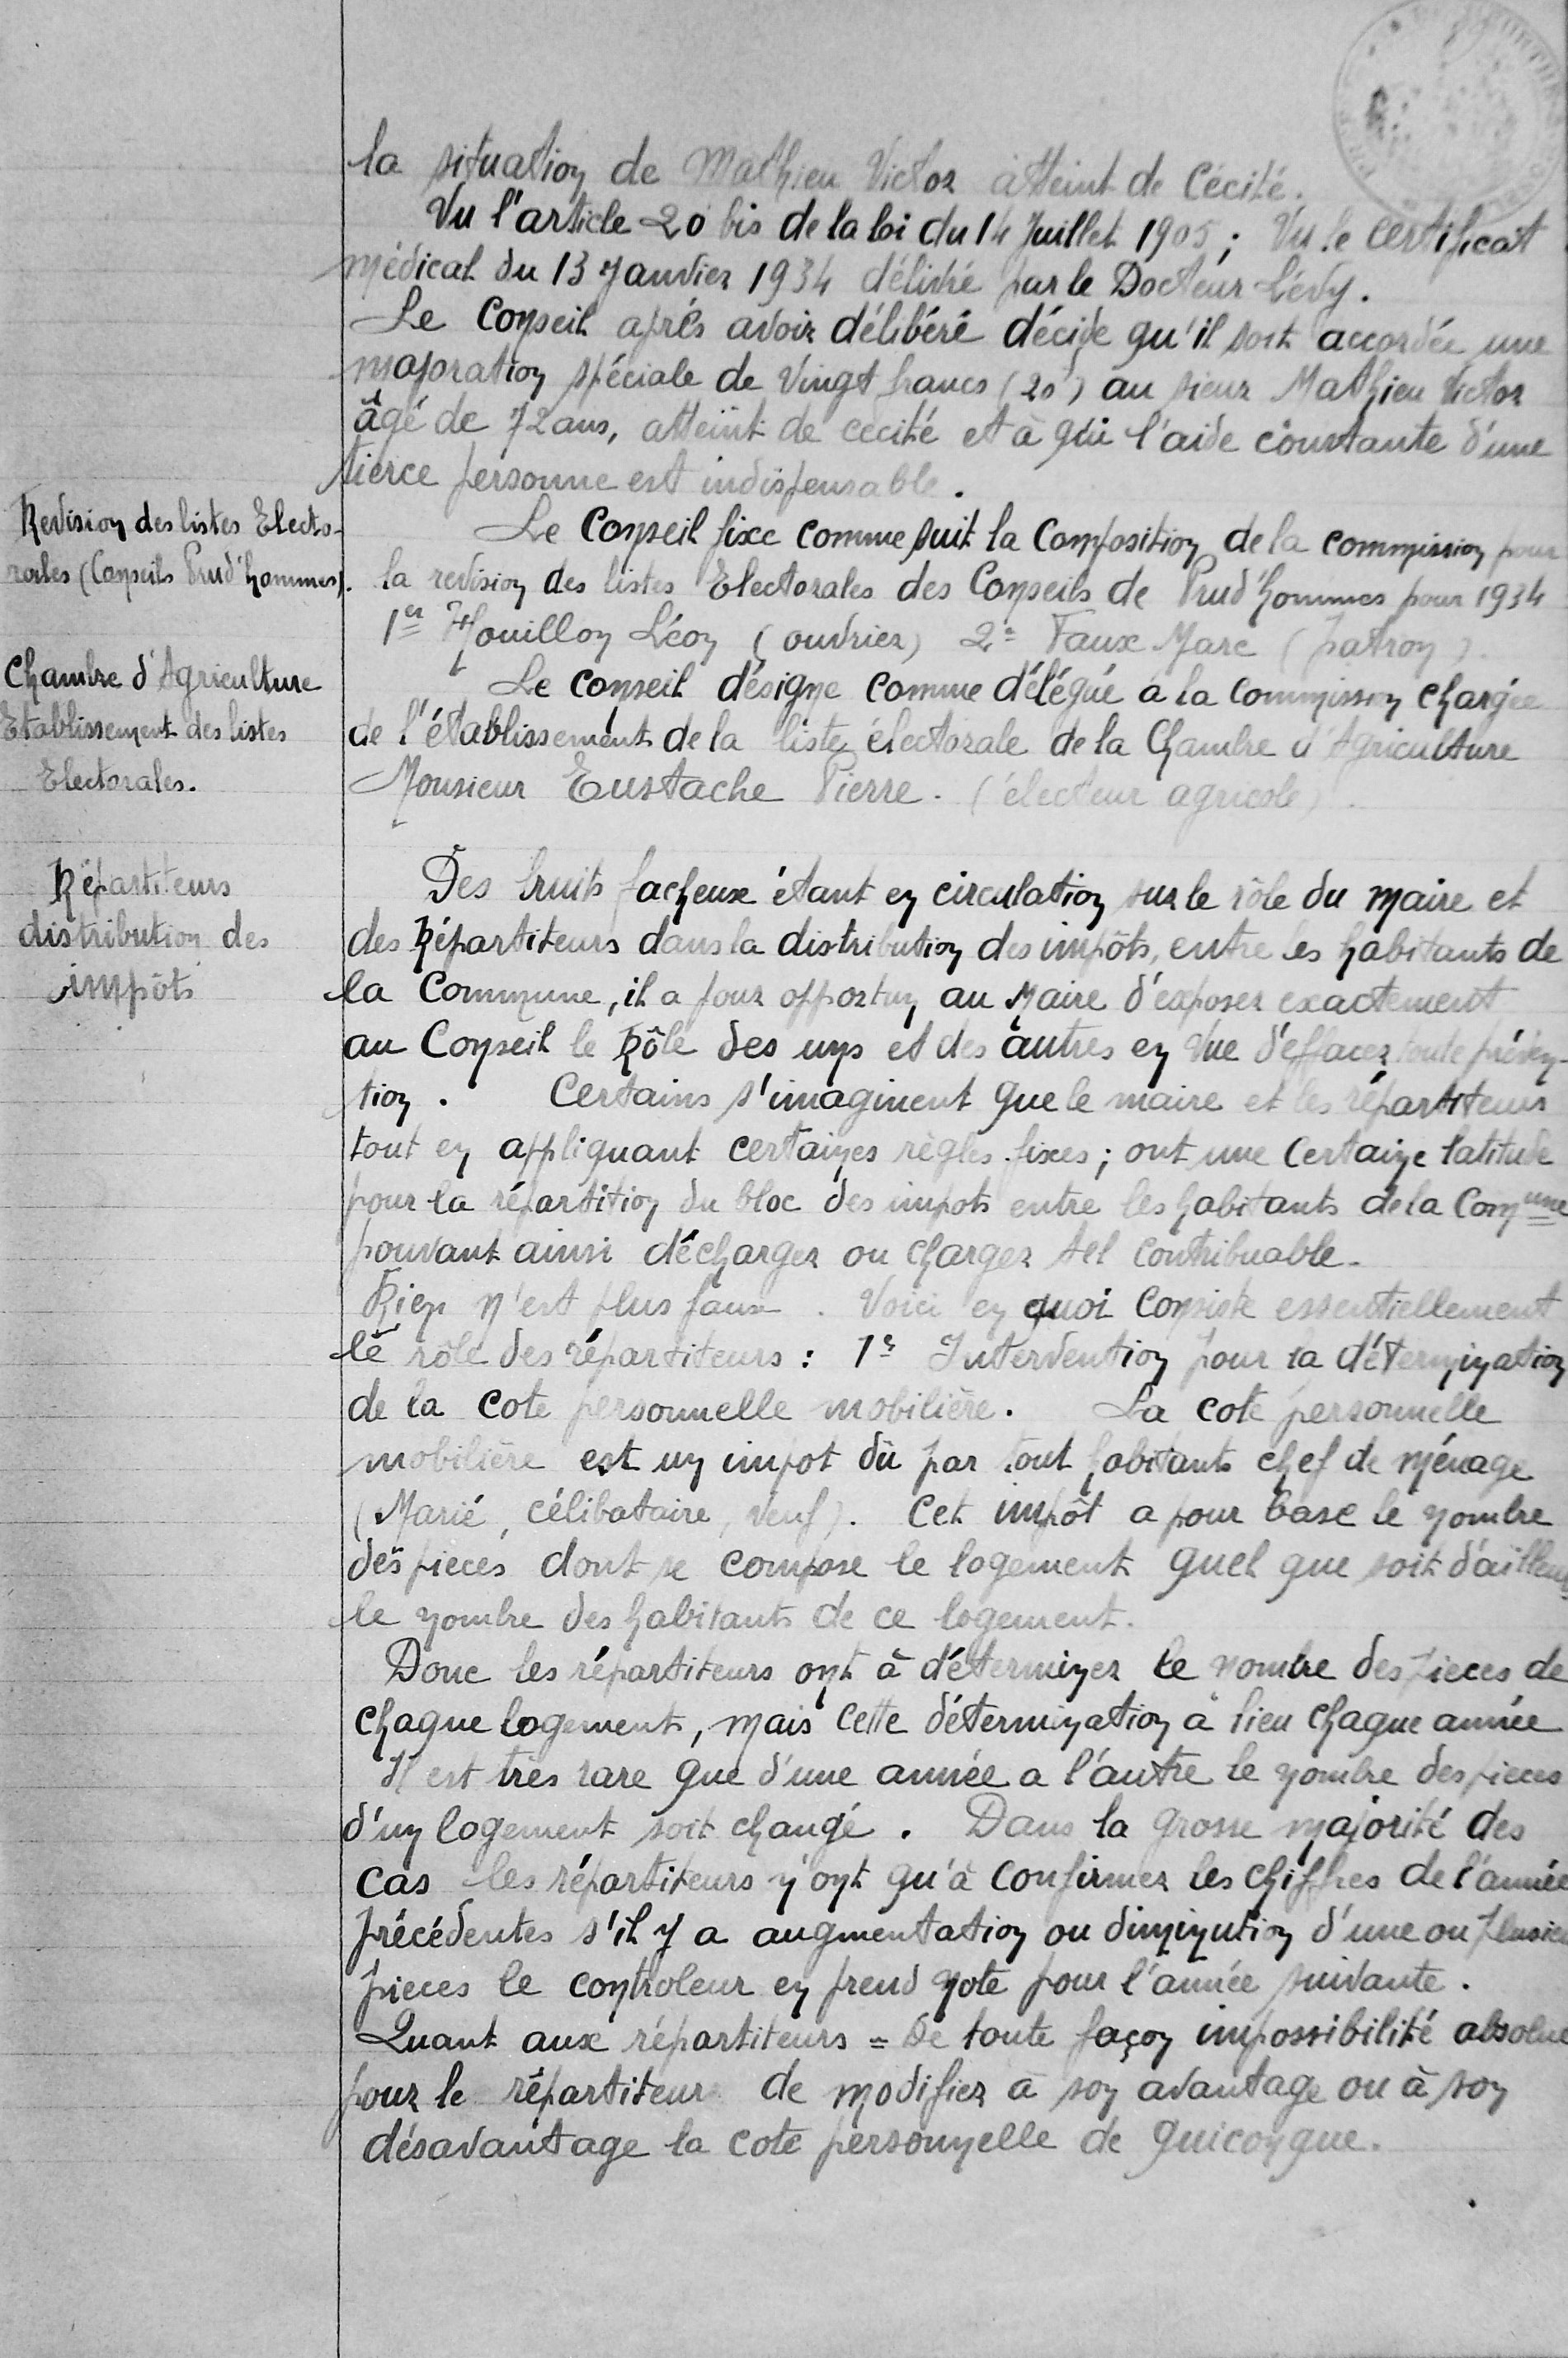 la situation de Mathieu Victor atteint de Cécité.
Vu l'article 20 bis de la loi du 14 Juillet 1905 ; Vu le certificat
médical du 13 Janvier 1934 délivré par le Docteur Lévy.
Le Conseil après avoir délibéré décide qu'il soit accordée une
majoration spéciale de Vingt francs (20f) au sieur Mathieu Victor
âgé de 72 ans, atteint de cécité et à qui l'aide constante d'une
tierce personne est indispensable.
Revision des listes Electo-
rales (Conseils Prud'hommes).
Le Conseil fixe comme suit la Composition de la commission pour
la revision des listes Electorales des Conseils de Prud'hommes pour 1934
1er Houillon Léon (ouvrier) 2e Faux Marc (patron).
Chambre d'Agriculture
Etablissement des listes
Electorales.
Le conseil désigne comme délégué à la Commission chargée
de l'établissement de la liste électorale de la Chambre d'Agriculture
Monsieur Eustache Pierre. (électeur agricole).
Répartiteurs
distribution des
impôts
Des bruits facheux étant en circulation sur le rôle du Maire et
des Répartiteurs dans la distribution des impôts, entre les habitants de
la Commune, il a pour opportun au Maire d'exposer exactement
au Conseil le Rôle des uns et des autres en vue d'effacer toute préven-
tion. Certains s'imaginent que le maire et les répartiteurs
tout en appliquant certaines règles fixes ; ont une Certaine latitude
pour la répartition du bloc des impots entre les habitants de la Commune
pouvant ainsi décharger ou charger tel contribuable.
Rien n'est plus faux. Voici en quoi Consiste essentiellement
le rôle des répartiteurs : 1e Intervention pour la détermination
de la cote personnelle mobilière. La cote personnelle
mobilière est un impot dû par tout habitants chef de ménage
(Marié, célibataire, veuf). Cet impôt a pour base le nombre
des pieces dont se compose le logement quel que soit d'ailleurs
le nombre des habitants de ce logement.
Donc les répartiteurs ont à déterminer le nombre des pieces de
chaque logement, mais cette détermination a lieu chaque année
Il est très rare que d'une année a l'autre le nombre des pieces
d'un logement soit changé. Dans la grosse majorité des
cas les répartiteurs n'ont qu'à confirmer les chiffres de l'année
précédentes s'il y a augmentation ou diminution d'une ou plusieurs
pieces le controleur en prend note pour l'année suivante.
Quant aux répartiteurs = De toute façon impossibilité absolue
pour le répartiteur de modifier à son avantage ou à son
désavantage la cote personnelle de quiconque.